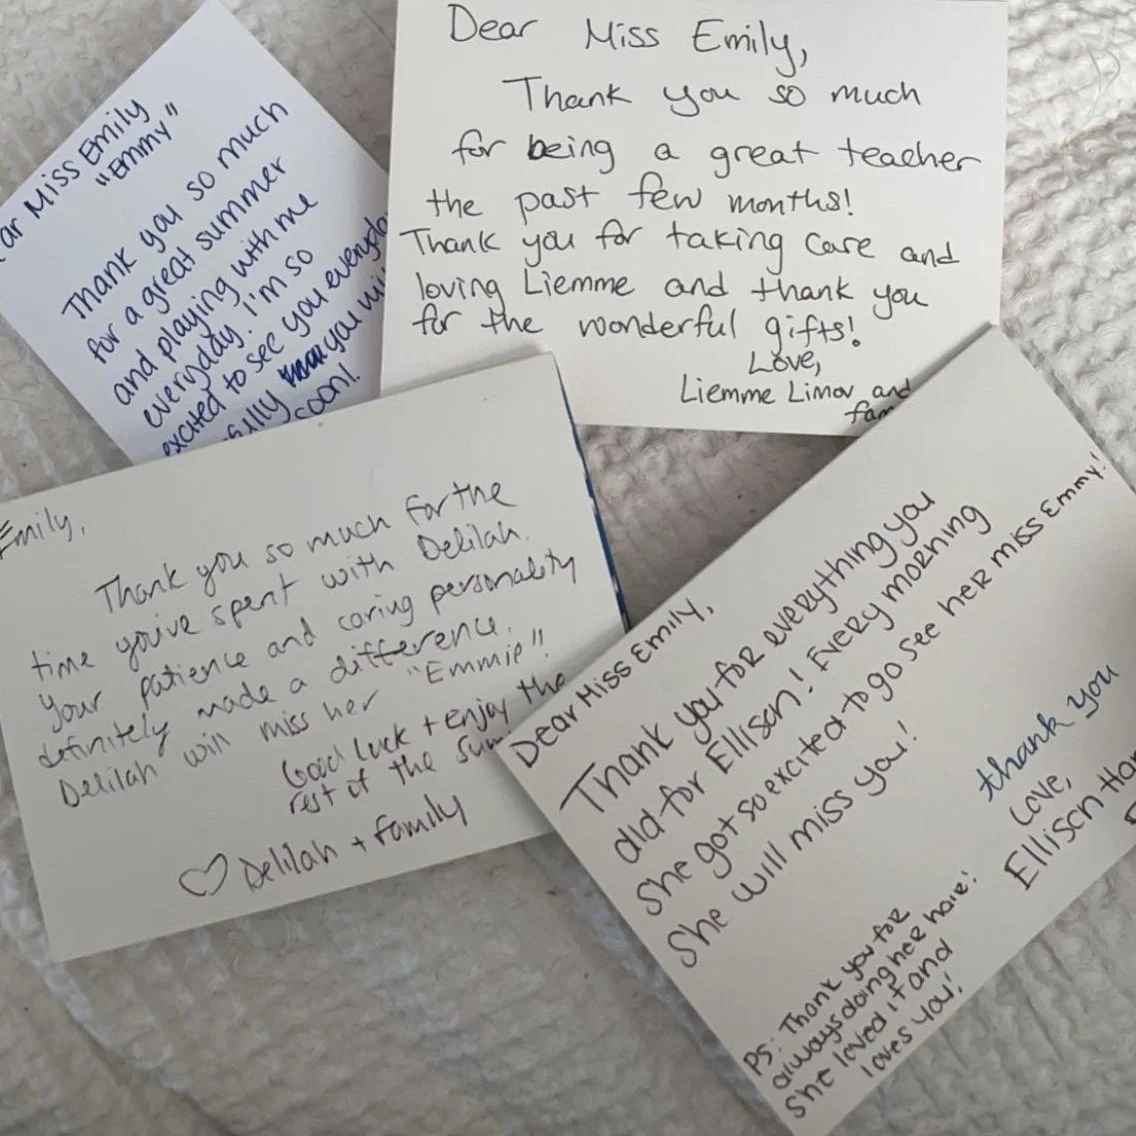 ar Miss Emily
"Emmy"
Thank you so much
for a great summer
and playing with me
everyday. I'm so
excited to see you everyda
fully you wil
soon!
Dear Miss Emily,
Thank you so much
for being a great teacher
the past few months!
Thank you for taking care and
loving Liemme and thank you
for the wonderful gifts!
Love,
Liemme Limov and
fam
Emily,
Thank you so much for the
time you've spent with Delilah.
Your patience and caring personality
definitely made a difference.
Delilah will miss her "Emmie".
Good luck + enjoy the
rest of the sum
♡ Delilah + family
Dear Miss Emily,
Thank you for everything you
did for Ellison! Every morning
she got so excited to go see her miss Emmy!
She will miss you!
thank you
Love,
Ellison Hor
PS: Thank you for
always doing her hair!
She loved it and
loves you!